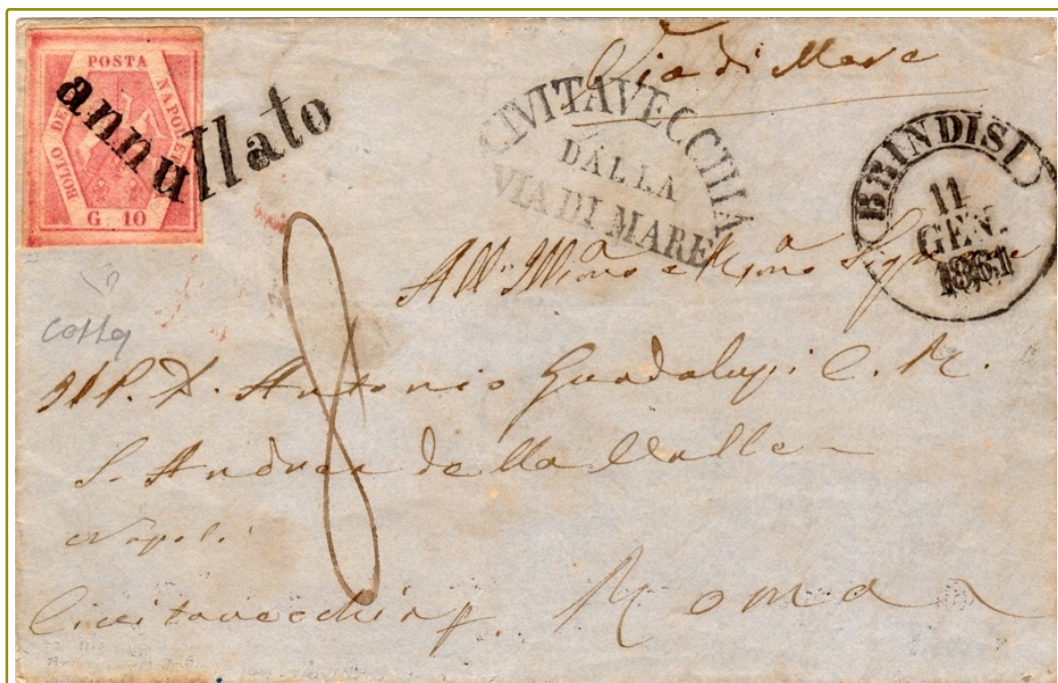 BOLLO DELLA POSTA NAPOLETANA
G. 10
annullato
Via di Mare
CIVITAVECCHIA
DALLA
VIA DI MARE
BRINDISI
11
GEN.
1861
8
All' Ill.mo e R.mo Sig.re
Il P. D. Antonio Guadalupi C. R.
S. Andrea della Valle
Napoli
Civitavecchia p. Roma